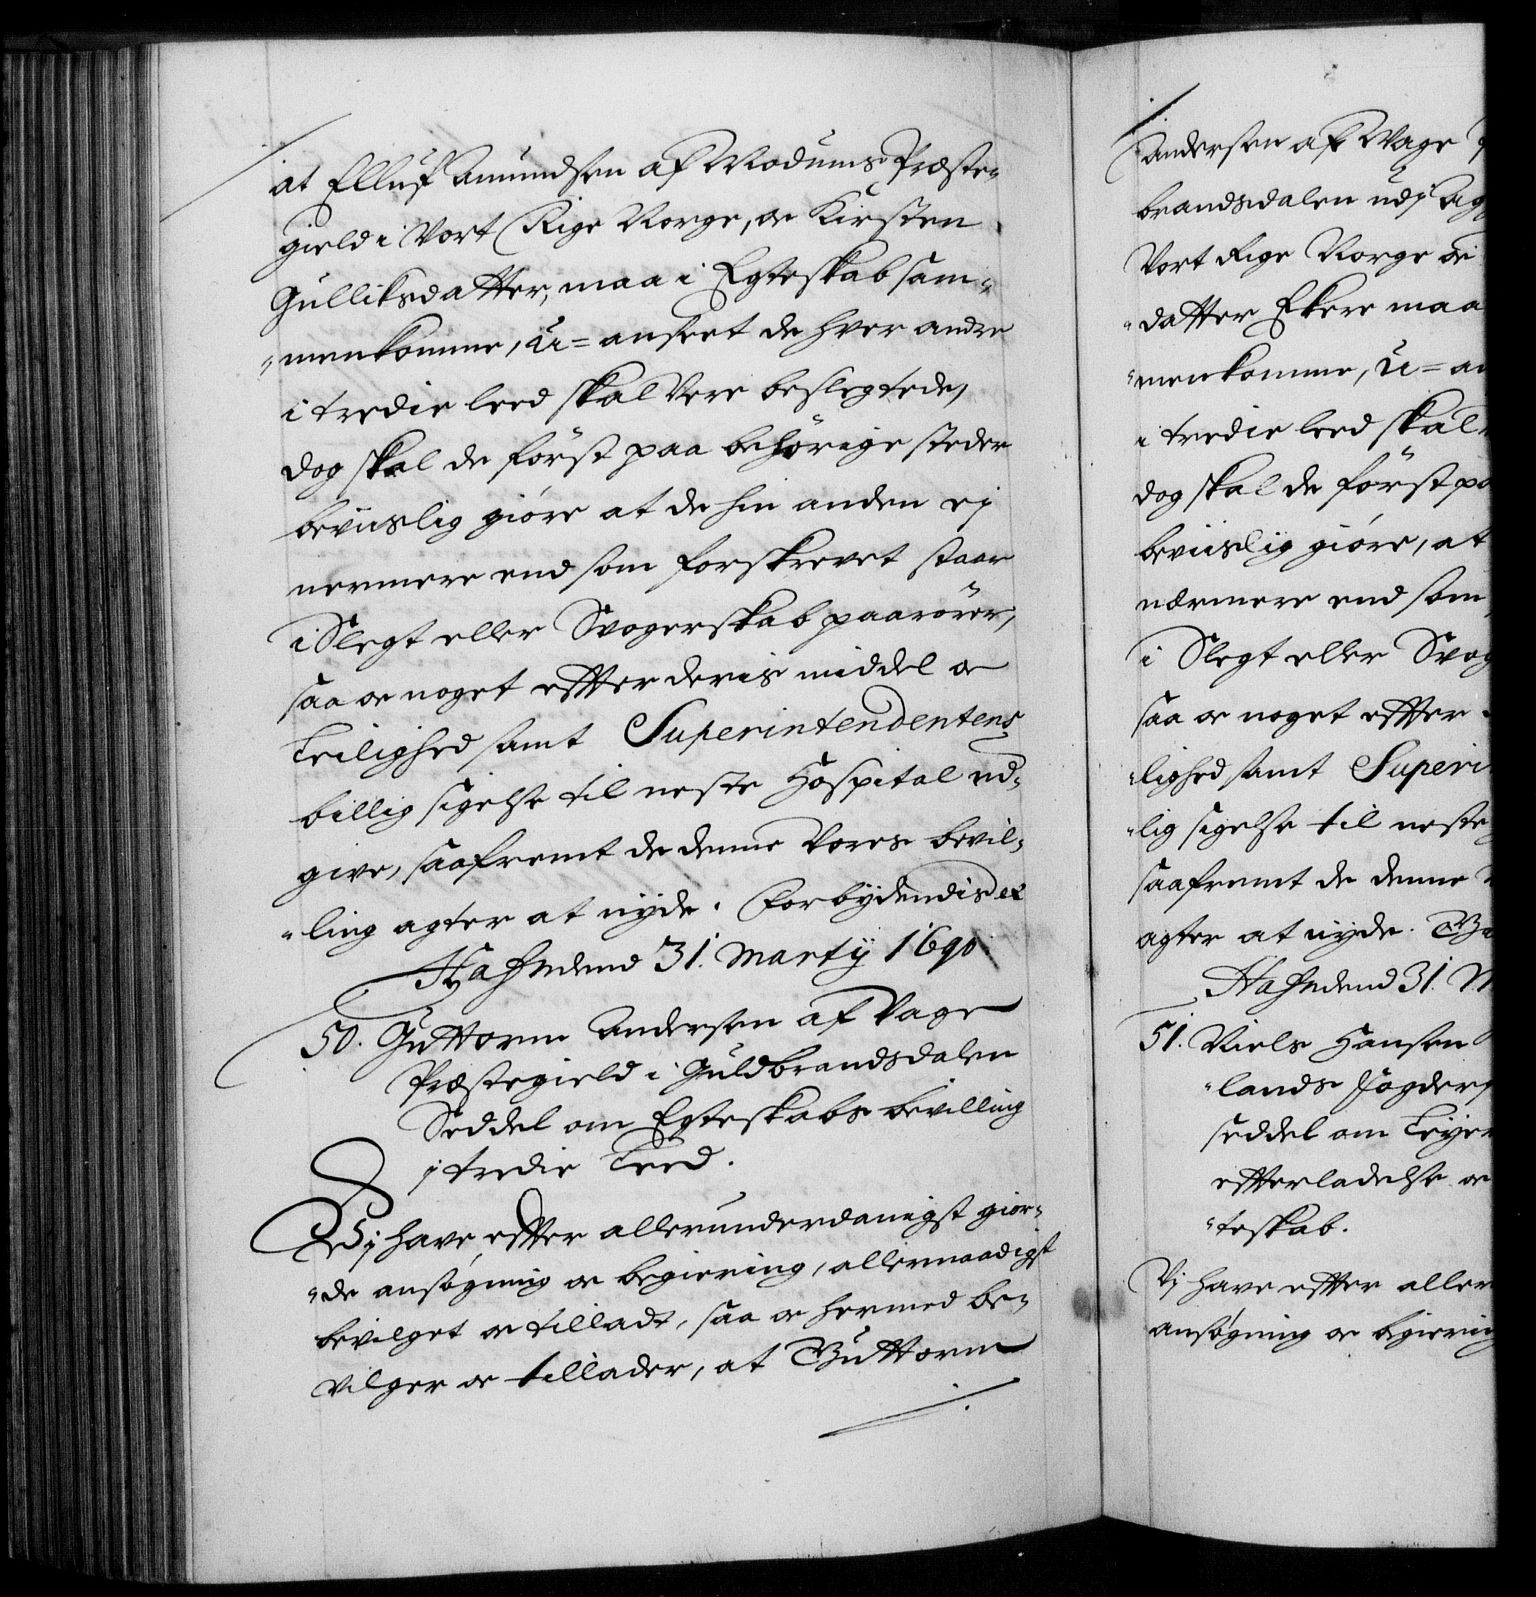 at Elluf Amundsen af Modums Præste-
gield i Vort Rige Norge, oc Kirsten
Gulliksdatter, maa i Egteskab sam-
menkomme, u=anseet de hver andre
i tredie leed skal vere beslegtede,
dog skal de först paa behörige steder
beviislig giöre at de hin anden ej
nermere end som forskrevet staar
i Slegt eller Svogerskab paarörer,
saa oc noget effter deris middel oc
Leilighed samt Superintendentens
billig sigelse til neste Hospital ud-
give, saafremt de denne Vores bevil-
ling agter at nyde. Forbydendis etc
Hafn den 31. Martij 1690.
50. Guttorm Andersen af Vage
Præstegield i Guldbrandsdalen
Seddel om Egteskabs bevilling
i tredie Leed.
Vij have, effter allerunderdanigst gior-
de ansögning oc begiering, allernaadigst
bevilget oc tilladt, saa oc hermed be-
vilger oc tillader, at Guttorm
Andersen af Vage
brandsdalen udj Agg
Vort Rige Norge oc
datter Ekere maa
menkomme, u=an
i tredie leed skal
dog skal de först pa
beviislig giöre, at
nærmere end som
i Slegt eller Svog
saa oc noget effter
lighed samt Superi
lig sigelse til neste
saafremt de denne
agter at nyde.
Hafn den 31. M
51. Niels Hansen
lands Fogderj
seddel om Leyer
effterladelse oc
teskab.
Vj have effter aller
ansögning oc begiering